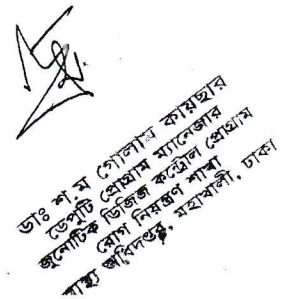 ডাঃ শ ম গোলাম কায়ছার
ডেপুটি প্রোগ্রাম ম্যানেজার
জুনোটিক ডিজিজ কন্ট্রোল প্রোগ্রাম
রোগ নিয়ন্ত্রণ শাখা
স্বাস্থ্য অধিদপ্তর, মহাখালী, ঢাকা